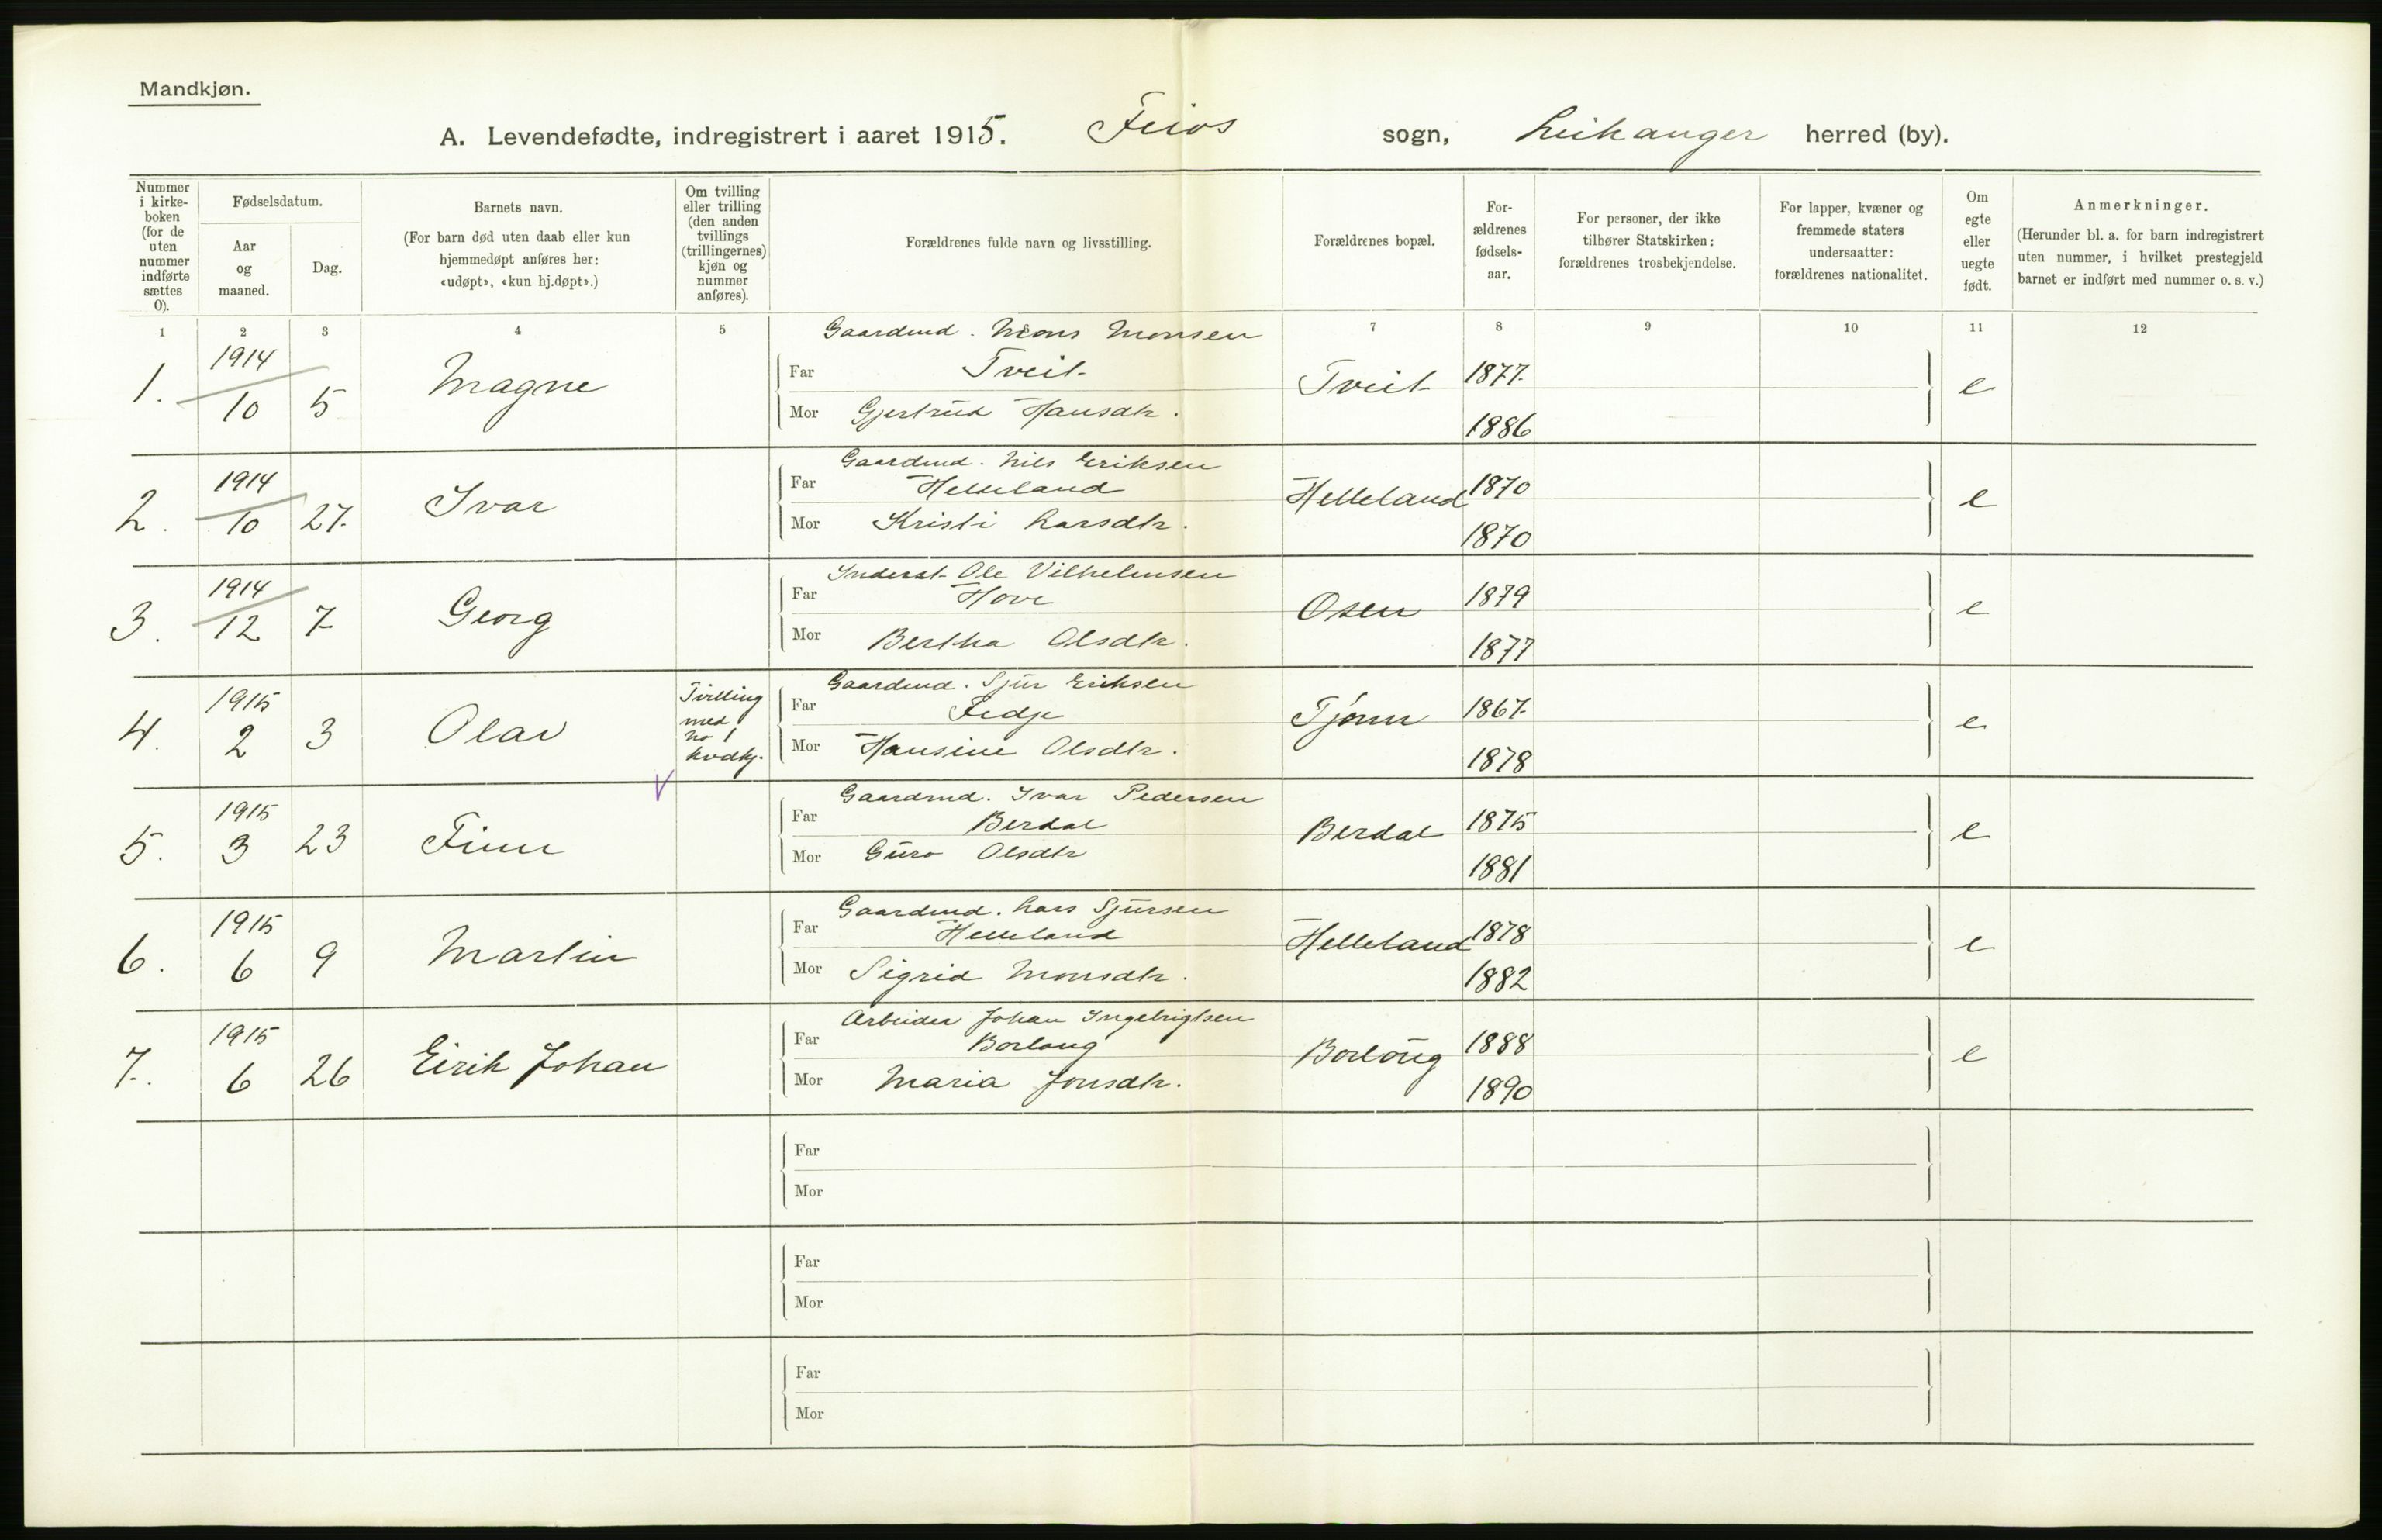 Mandkjøn.
A. Levendefødte, indregistrert i aaret 1915. Feios sogn, Leikanger herred (by).
Nummer i kirke-boken (for de uten nummer indførte sættes 0).
Fødselsdatum.
Aar og maaned.
Dag.
Barnets navn.
(For barn død uten daab eller kun hjemmedøpt anføres her: «udøpt», «kun hj.døpt».)
Om tvilling eller trilling (den anden tvillings (trillingernes) kjøn og nummer anføres).
Forældrenes fulde navn og livsstilling.
Forældrenes bopæl.
For-ældrenes fødsels-aar.
For personer, der ikke tilhører Statskirken: forældrenes trosbekjendelse.
For lapper, kvæner og fremmede staters undersaatter: forældrenes nationalitet.
Om egte eller uegte født.
Anmerkninger.
(Herunder bl. a. for barn indregistrert uten nummer, i hvilket prestegjeld barnet er indført med nummer o. s. v.)
1 2 3 4 5 7 8 9 10 11 12
1. 1914 10 5 Magne
Gaardmd. Mons Monsen
Far Tveit Tveit 1877 e
Mor Gjertrud Hansdtr. 1886
2. 1914 10 27 Ivar
Gaardmd. Nils Eriksen
Far Helleland Helleland 1870 e
Mor Kristi Larsdtr. 1870
3. 1914 12 7 Georg
Inderst Ole Vilhelmsen
Far Hove Osen 1879 e
Mor Bertha Olsdtr. 1877
4. 1915 2 3 Olav
Tvilling
med
No 1
kvdkj.
Gaardmd. Sjur Eriksen
Far Fedje Tjønn 1867 e
Mor Hansine Olsdtr. 1878
5. 1915 3 23 Finn
Gaardmd. Ivar Pedersen
Far Berdal Berdal 1875 e
Mor Guro Olsdtr 1881
6. 1915 6 9 Martin
Gaardmd. Lars Sjursen
Far Helleland Helleland 1878 e
Mor Sigrid Monsdtr. 1882
7. 1915 6 26 Eirik Johan
Arbeider Johan Ingebrigtsen
Far Borlaug Borlaug 1888 e
Mor Maria Jonsdtr. 1890
Far
Mor
Far
Mor
Far
Mor